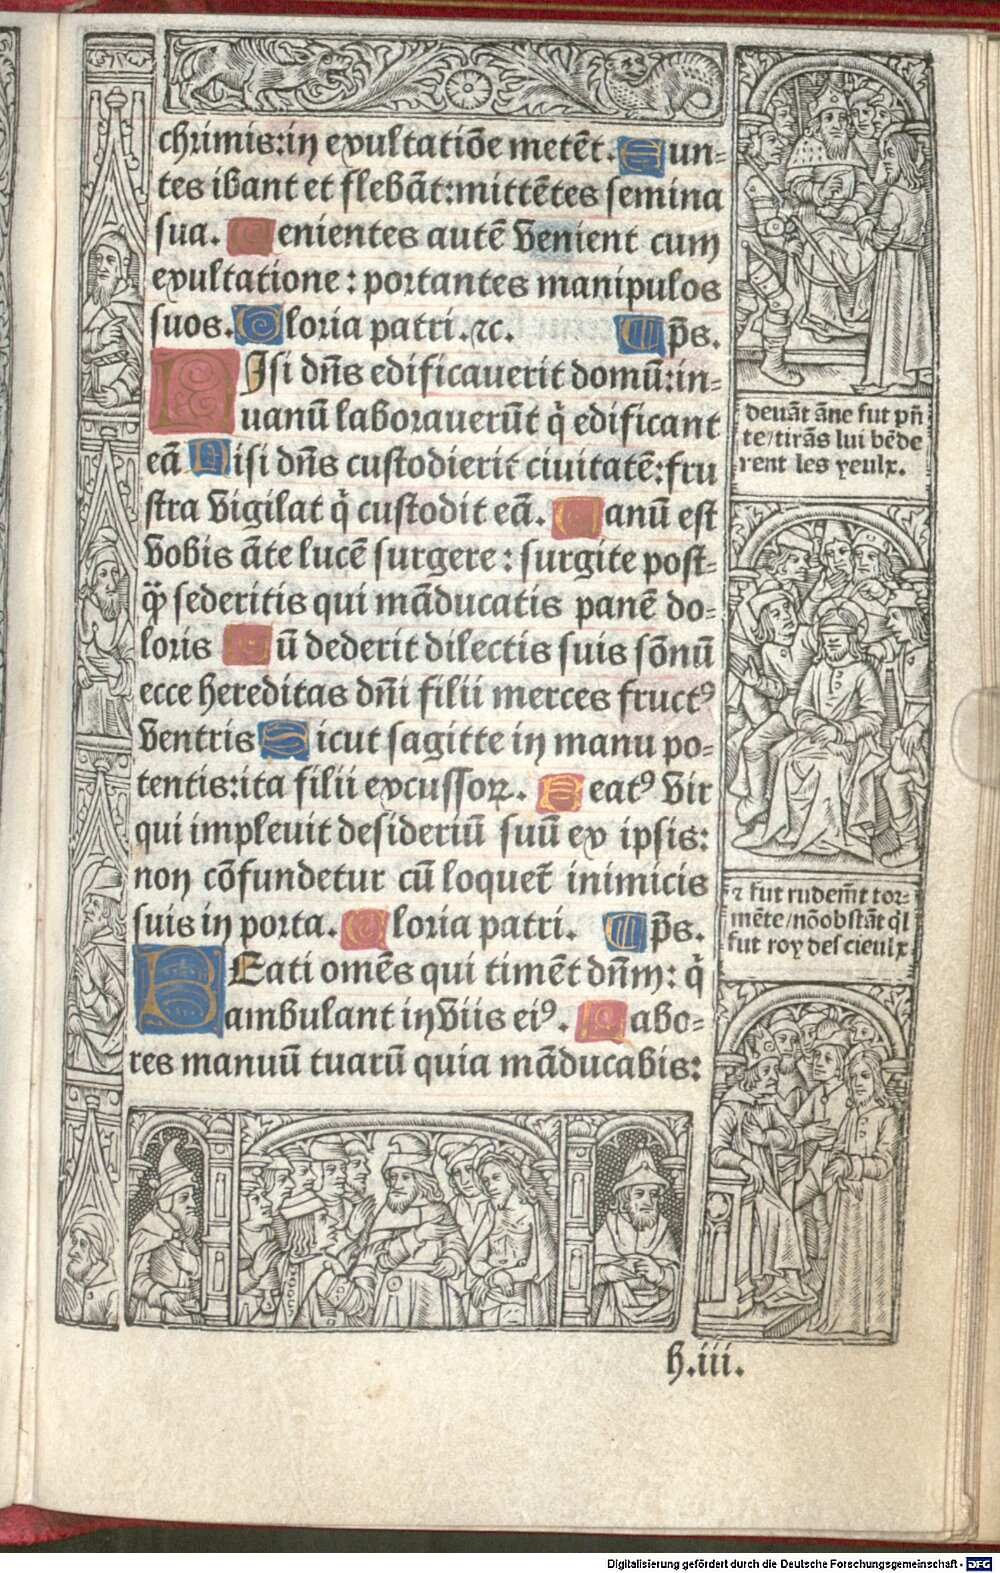 chrimis:in exultatiõe metẽt. Eun-
tes ibant et flebãt:mittẽtes semina
sua. Venientes autẽ venient cum
exultatione: portantes manipulos
suos. Gloria patri.⁊c. ¶ p̃s.
NIsi dñs edificauerit domũ:in-
uanũ laborauerũt q̃ edificant
eã Nisi dñs custodierit ciuitatẽ:fru
stra vigilat q̃ custodit eã. Vanũ est
vobis ãte lucẽ surgere: surgite post-
q̃ sederitis qui mãducatis panẽ do-
loris Cũ dederit dilectis suis sõnũ
ecce hereditas dñi filii merces fructꝰ
ventris Sicut sagitte in manu po-
tentis:ita filii excussoꝝ. Beatꝰ vir
qui impleuit desideriũ suũ ex ipsis:
non cõfundetur cũ loquet̃ inimicis
suis in porta. Gloria patri. ¶ p̃s.
BEati omẽs qui timẽt dñm: q̃
ambulant in viis eiꝰ. Labo-
res manuũ tuarũ quia mãducabis:
deuãt ãne fut pñ
te/tirãs lui bẽde
rent les yeulx.
⁊ fut rudem̃t tor-
mẽte/nõobstãt q̃l
fut roy des cieulx
h.iii.
Digitalisierung gefördert durch die Deutsche Forschungsgemeinschaft - DFG